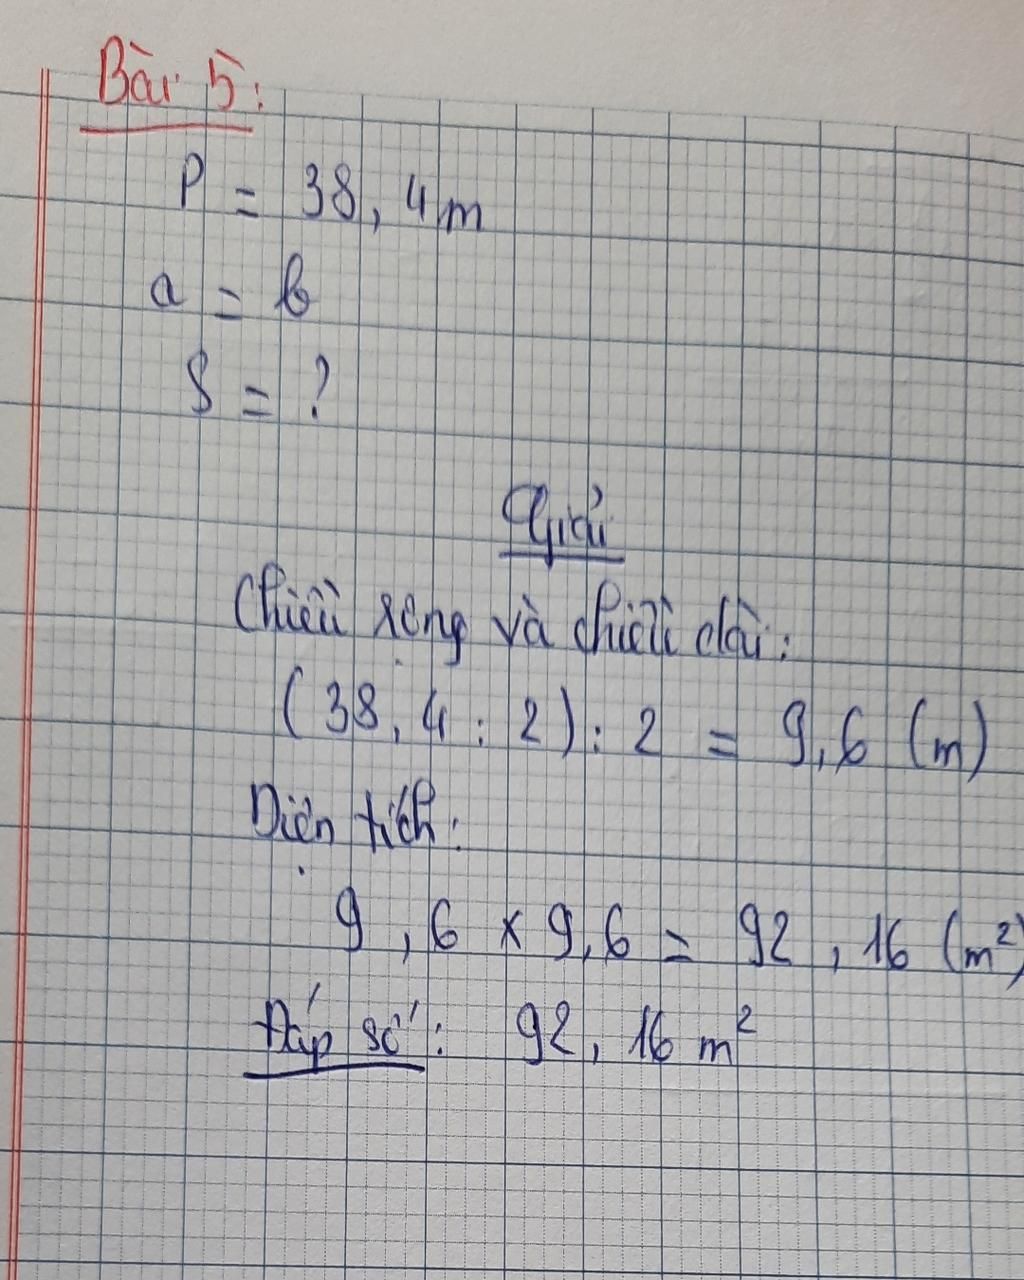 Bài 5:
P = 38,4m
a = b
S = ?
Giải
Chiều rộng và chiều dài:
(38,4 : 2) : 2 = 9,6 (m)
Diện tích:
9,6 x 9,6 = 92,16 (m²)
Đáp số: 92,16 m²